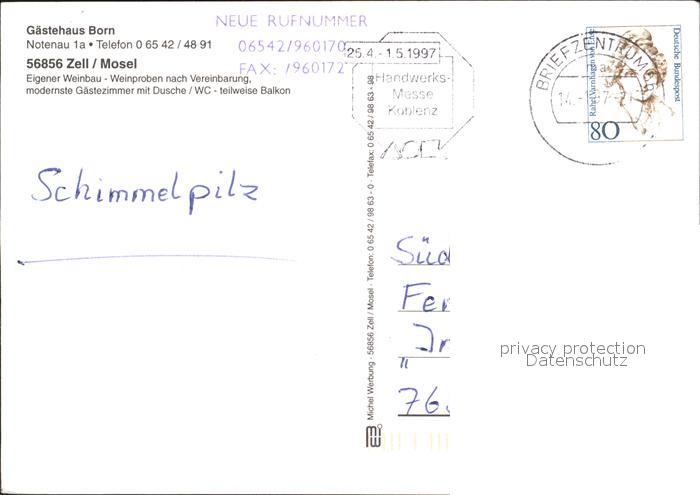 Gästehaus Born
Notenau 1a • Telefon 0 65 42 / 48 91
56856 Zell / Mosel
Eigener Weinbau - Weinproben nach Vereinbarung,
modernste Gästezimmer mit Dusche / WC - teilweise Balkon
NEUE RUFNUMMER
06542/960170
FAX: /960172
25.4.-1.5.1997
Handwerks-
Messe
Koblenz
BRIEFZENTRUM
Deutsche Bundespost
Rahel Varnhagen von Ense
80
Schimmelpilz
Michel Werbung - 56856 Zell / Mosel - Telefon: 0 65 42 / 98 63 - 0 - Telefax: 0 65 42 / 98 63 - 98
Süd
Fer
"
76
privacy protection
Datenschutz